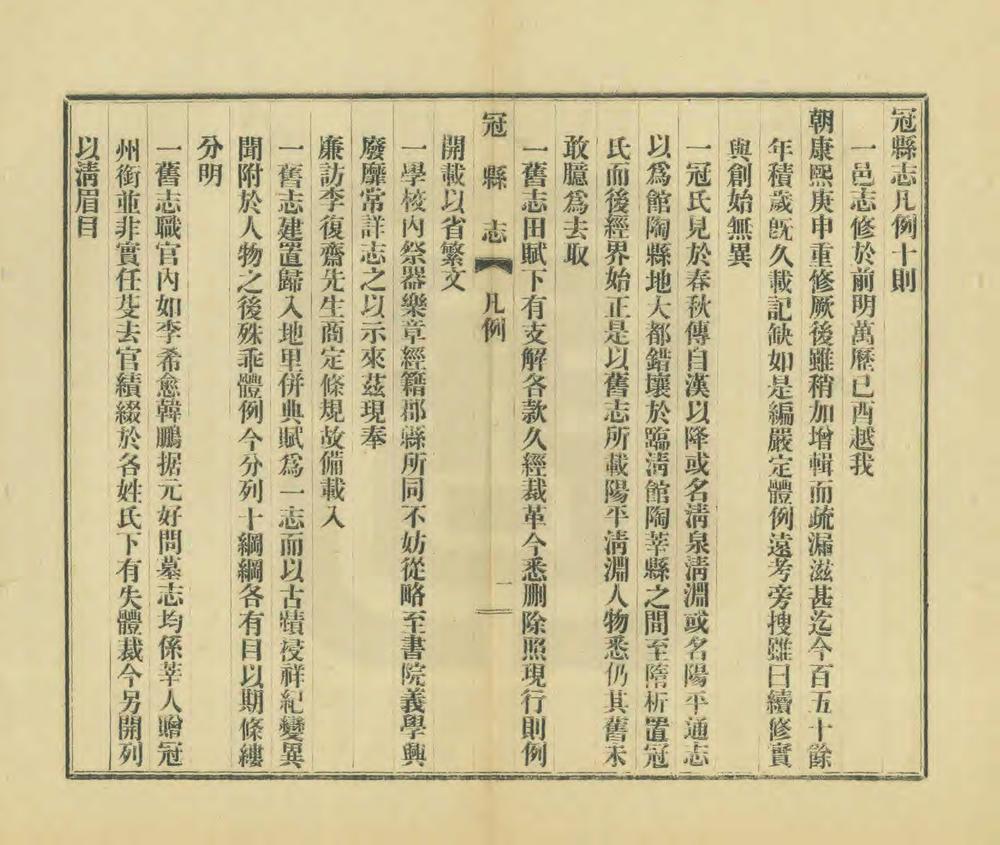 冠縣志凡例十則
一邑志修於前明萬歷己酉越我
朝康熙庚申重修厥後雖稍加增輯而疏漏滋甚迄今百五十餘
年積歲旣久載記缺如是編嚴定體例遠考旁搜雖曰續修實
與創始無異
一冠氏見於春秋傳自漢以降或名淸泉淸淵或名陽平通志
以爲館陶縣地大都錯壤於臨淸館陶莘縣之間至隋析置冠
氏而後經界始正是以舊志所載陽平淸淵人物悉仍其舊未
敢臆爲去取
一舊志田賦下有支解各款久經裁革今悉刪除照現行則例
冠縣志 凡例 一
開載以省繁文
一學校內祭器樂章經籍郡縣所同不妨從略至書院義學興
廢靡常詳志之以示來茲現奉
廉訪李復齋先生商定條規故備載入
一舊志建置歸入地里併典賦爲一志而以古蹟祲祥紀變異
聞附於人物之後殊乖體例今分列十綱綱各有目以期條縷
分明
一舊志職官內如李希愈韓鵬据元好問墓志均係莘人贈冠
州銜並非實任芟去官績綴於各姓氏下有失體裁今另開列
以淸眉目